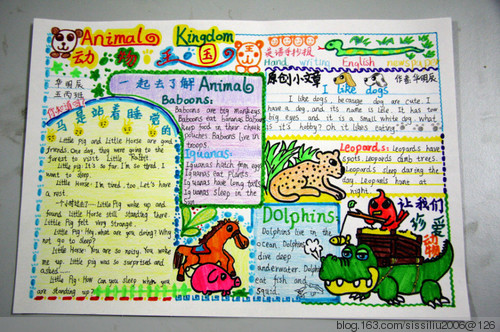 Animal Kingdom
动物王国
英语手抄报
Hand writing English newspaper
五丙班
一起去了解 Animal
Baboons:
Baboons are big monkeys
Baboons eat bananas. Baboons
keep food in their cheek
pouches. Baboons live in
troops.
Iguanas:
Iguanas hatch from eggs
Iguanas eat plants.
Iguanas have long tails
Iguanas sleep in the
sun.
马是站着睡觉的
Little Pig and Little Horse are good
friends. One day, they were going to the
forest to visit Little Rabbit.
Little Pig: It's so far. I'm so tired. I
want to sleep.
Little Horse: I'm tired, too. Let's have
a rest.
Little Pig woke up and
found Little Horse still standing there.
Little Pig felt very strange.
Little Pig: Hey, what are you doing? Why
not go to sleep?
Little Horse: You are so noisy. You woke
me up. Little pig was so surprised and
asked......
Little Pig: How can you sleep when you
are standing up?
原创小文章
I like dogs
I like dogs, because dog are cute. I
have a dog, and its name is Idle. It has two
big eyes, and it is a small white dog. What
is it's hobby? Oh it likes eating.
Leopards: leopards have
spots. Leopards climb trees.
Leopards sleep during the
day. Leopards hunt at
night.
Dolphins:
Dolphins live in the
ocean. Dolphins
dive deep
underwater. Dolphins
eat fish and
squid.
让我们
珍爱
动物
blog.163.com/sissiliu2006@126